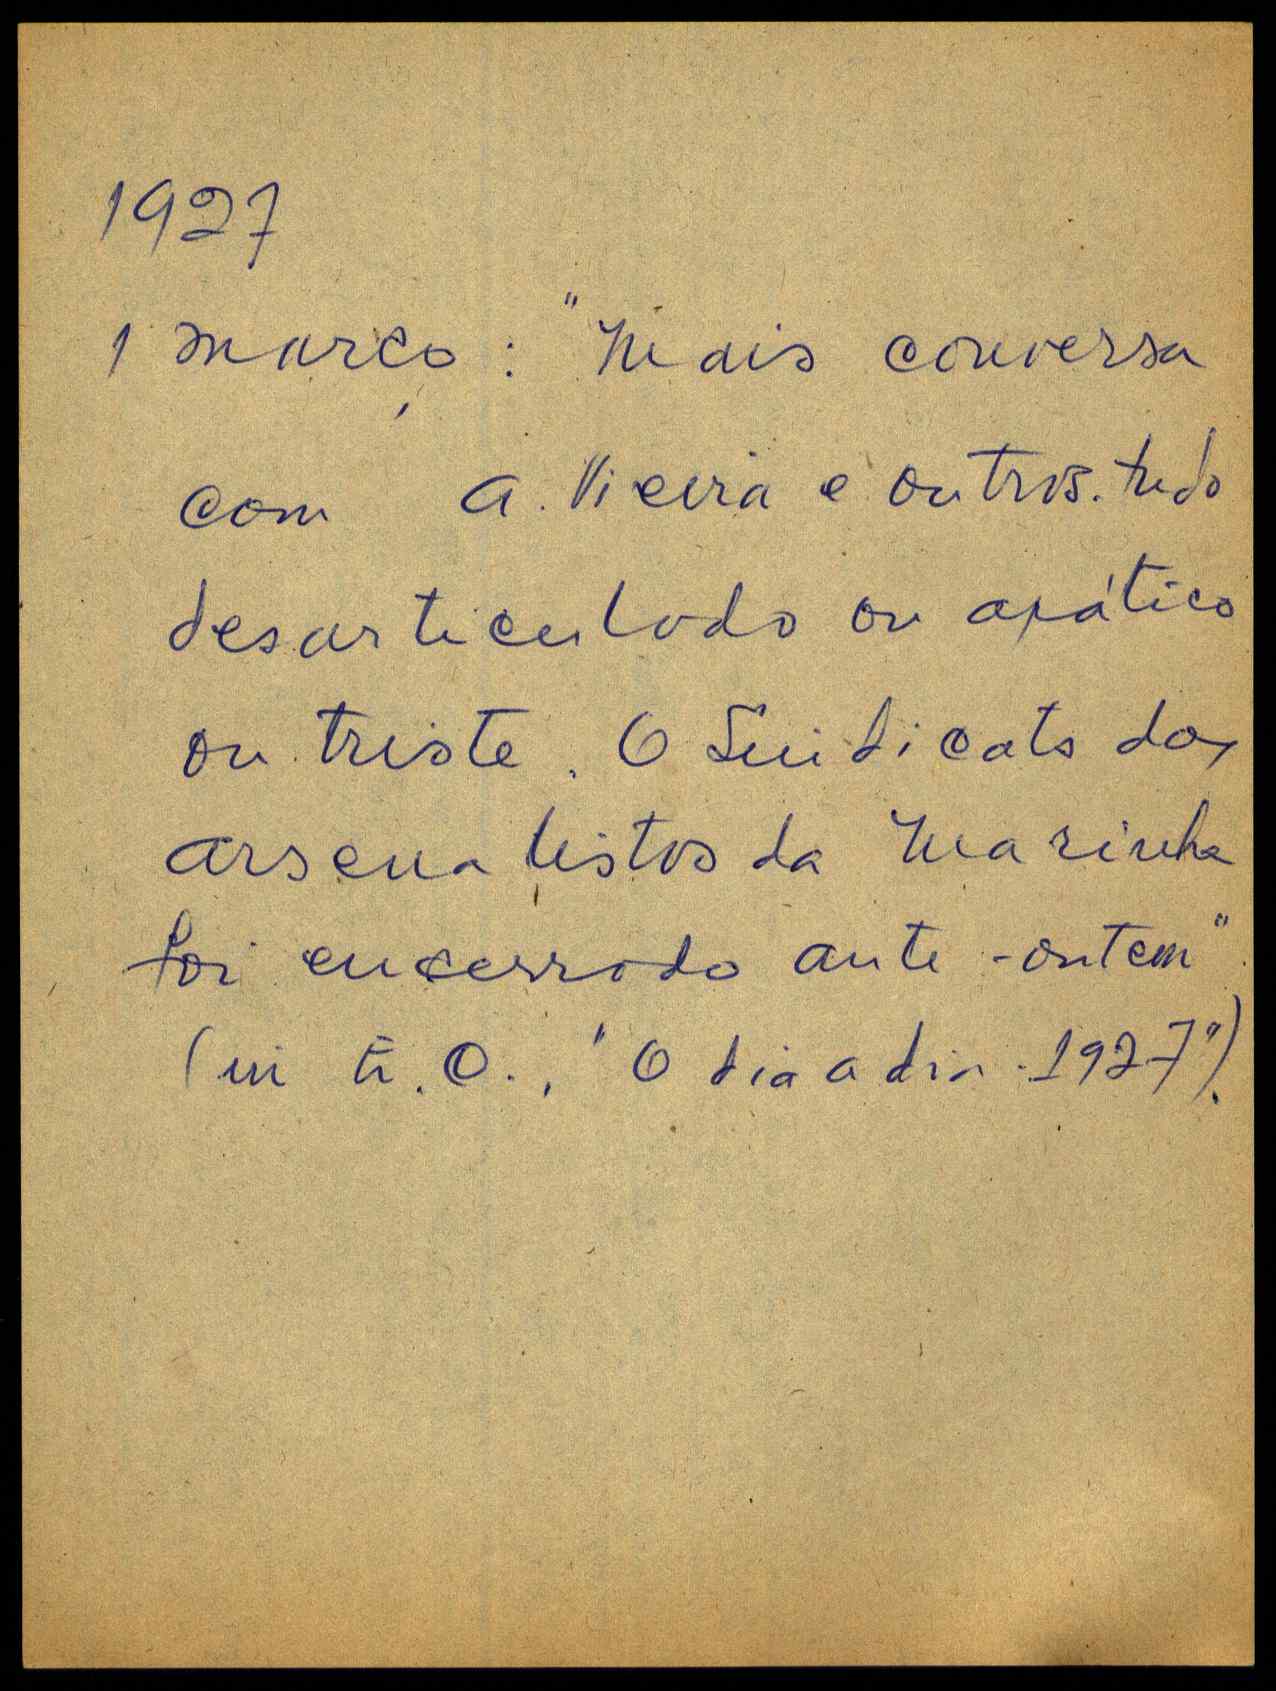 1927
1 março : "Mais conversa
com A. Vieira e outros. tudo
desarticulado ou apático
ou triste. O Sindicato dos
arsenalistas da Marinha
foi encerrado ante-ontem"
(in E.C., "O dia a dia - 1927").